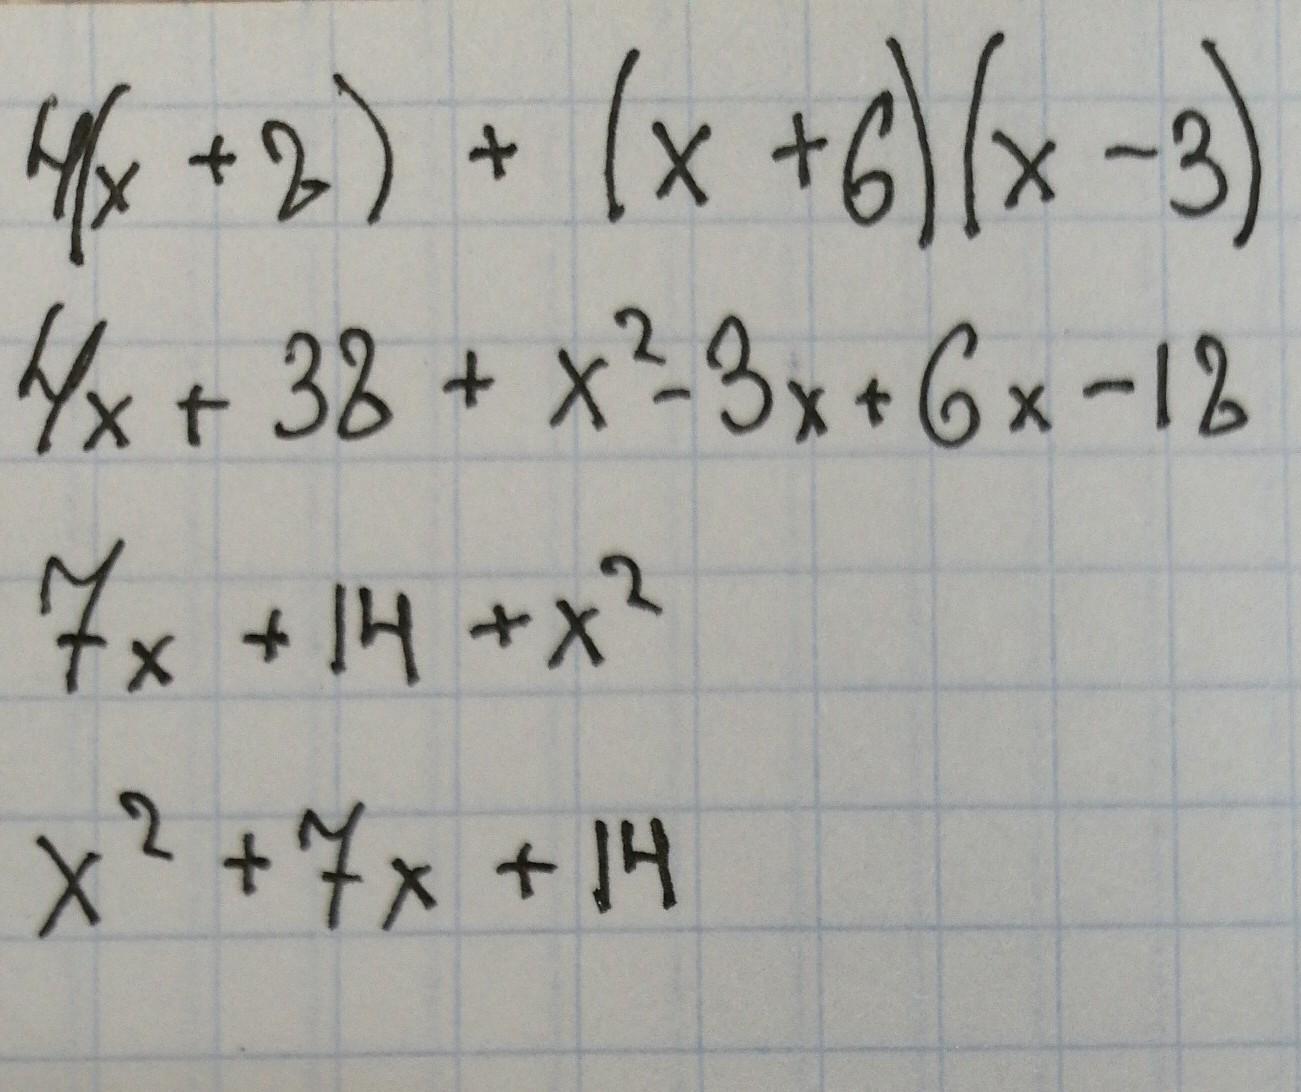 4(x + 8) + (x + 6)(x - 3)
4x + 38 + x² - 3x + 6x - 18
7x + 14 + x²
x² + 7x + 14